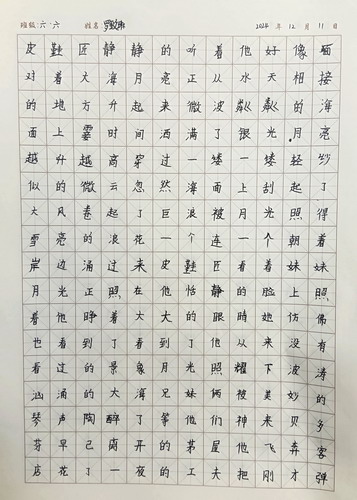 班级:六.六 姓名: 2024年12月11日
皮鞋匠静静的听着他好像面
对着大海月亮正从水天相接
的地方升起来微波粼粼的海
面上霎时间洒满了银光.月亮
越升越高穿过一缕一缕轻纱
似的微云忽然海面上刮起了
大风卷起了巨浪被月光照得
雪亮的浪花一个连一个朝着
岸边涌过来皮鞋匠看着妹妹
月光正照在他恬静的脸上照
着他睁着大大的眼睛她仿佛
也看到了看到了他从来没有
看过的景象月光照耀下波涛
汹涌的大海兄妹俩被美妙的
琴声陶醉了等他们神来贝多
芬早已离开的茅屋他飞奔客
店花了一夜的工夫把刚才弹